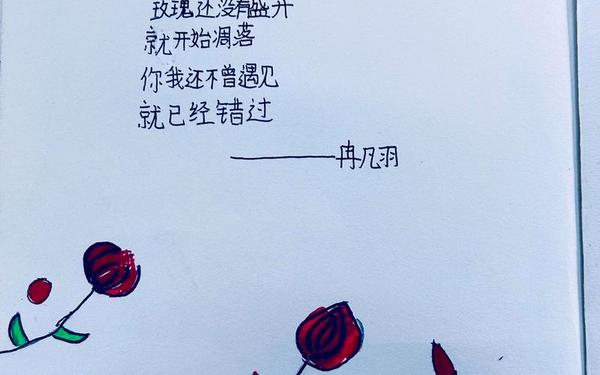 玫瑰还没有盛开
就开始凋落
你我还不曾遇见
就已经错过
———冉凡羽